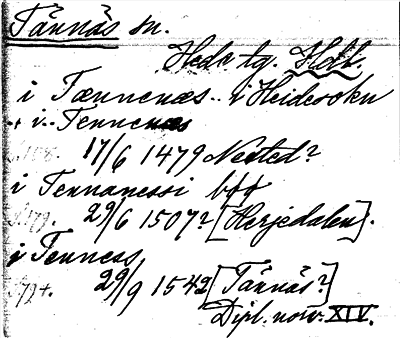 Tännäs sn.
Hede tg.
i Tænnenæs.. i Heidesokn
i.. Tennenæs
17/6 1479 Nested?
i Tennanessi bff
S. 179. 29/6 1507? [Herjedalen].
i Tenness
29/9 1542 [Tännäs?]
Dipl. norv. XIV.